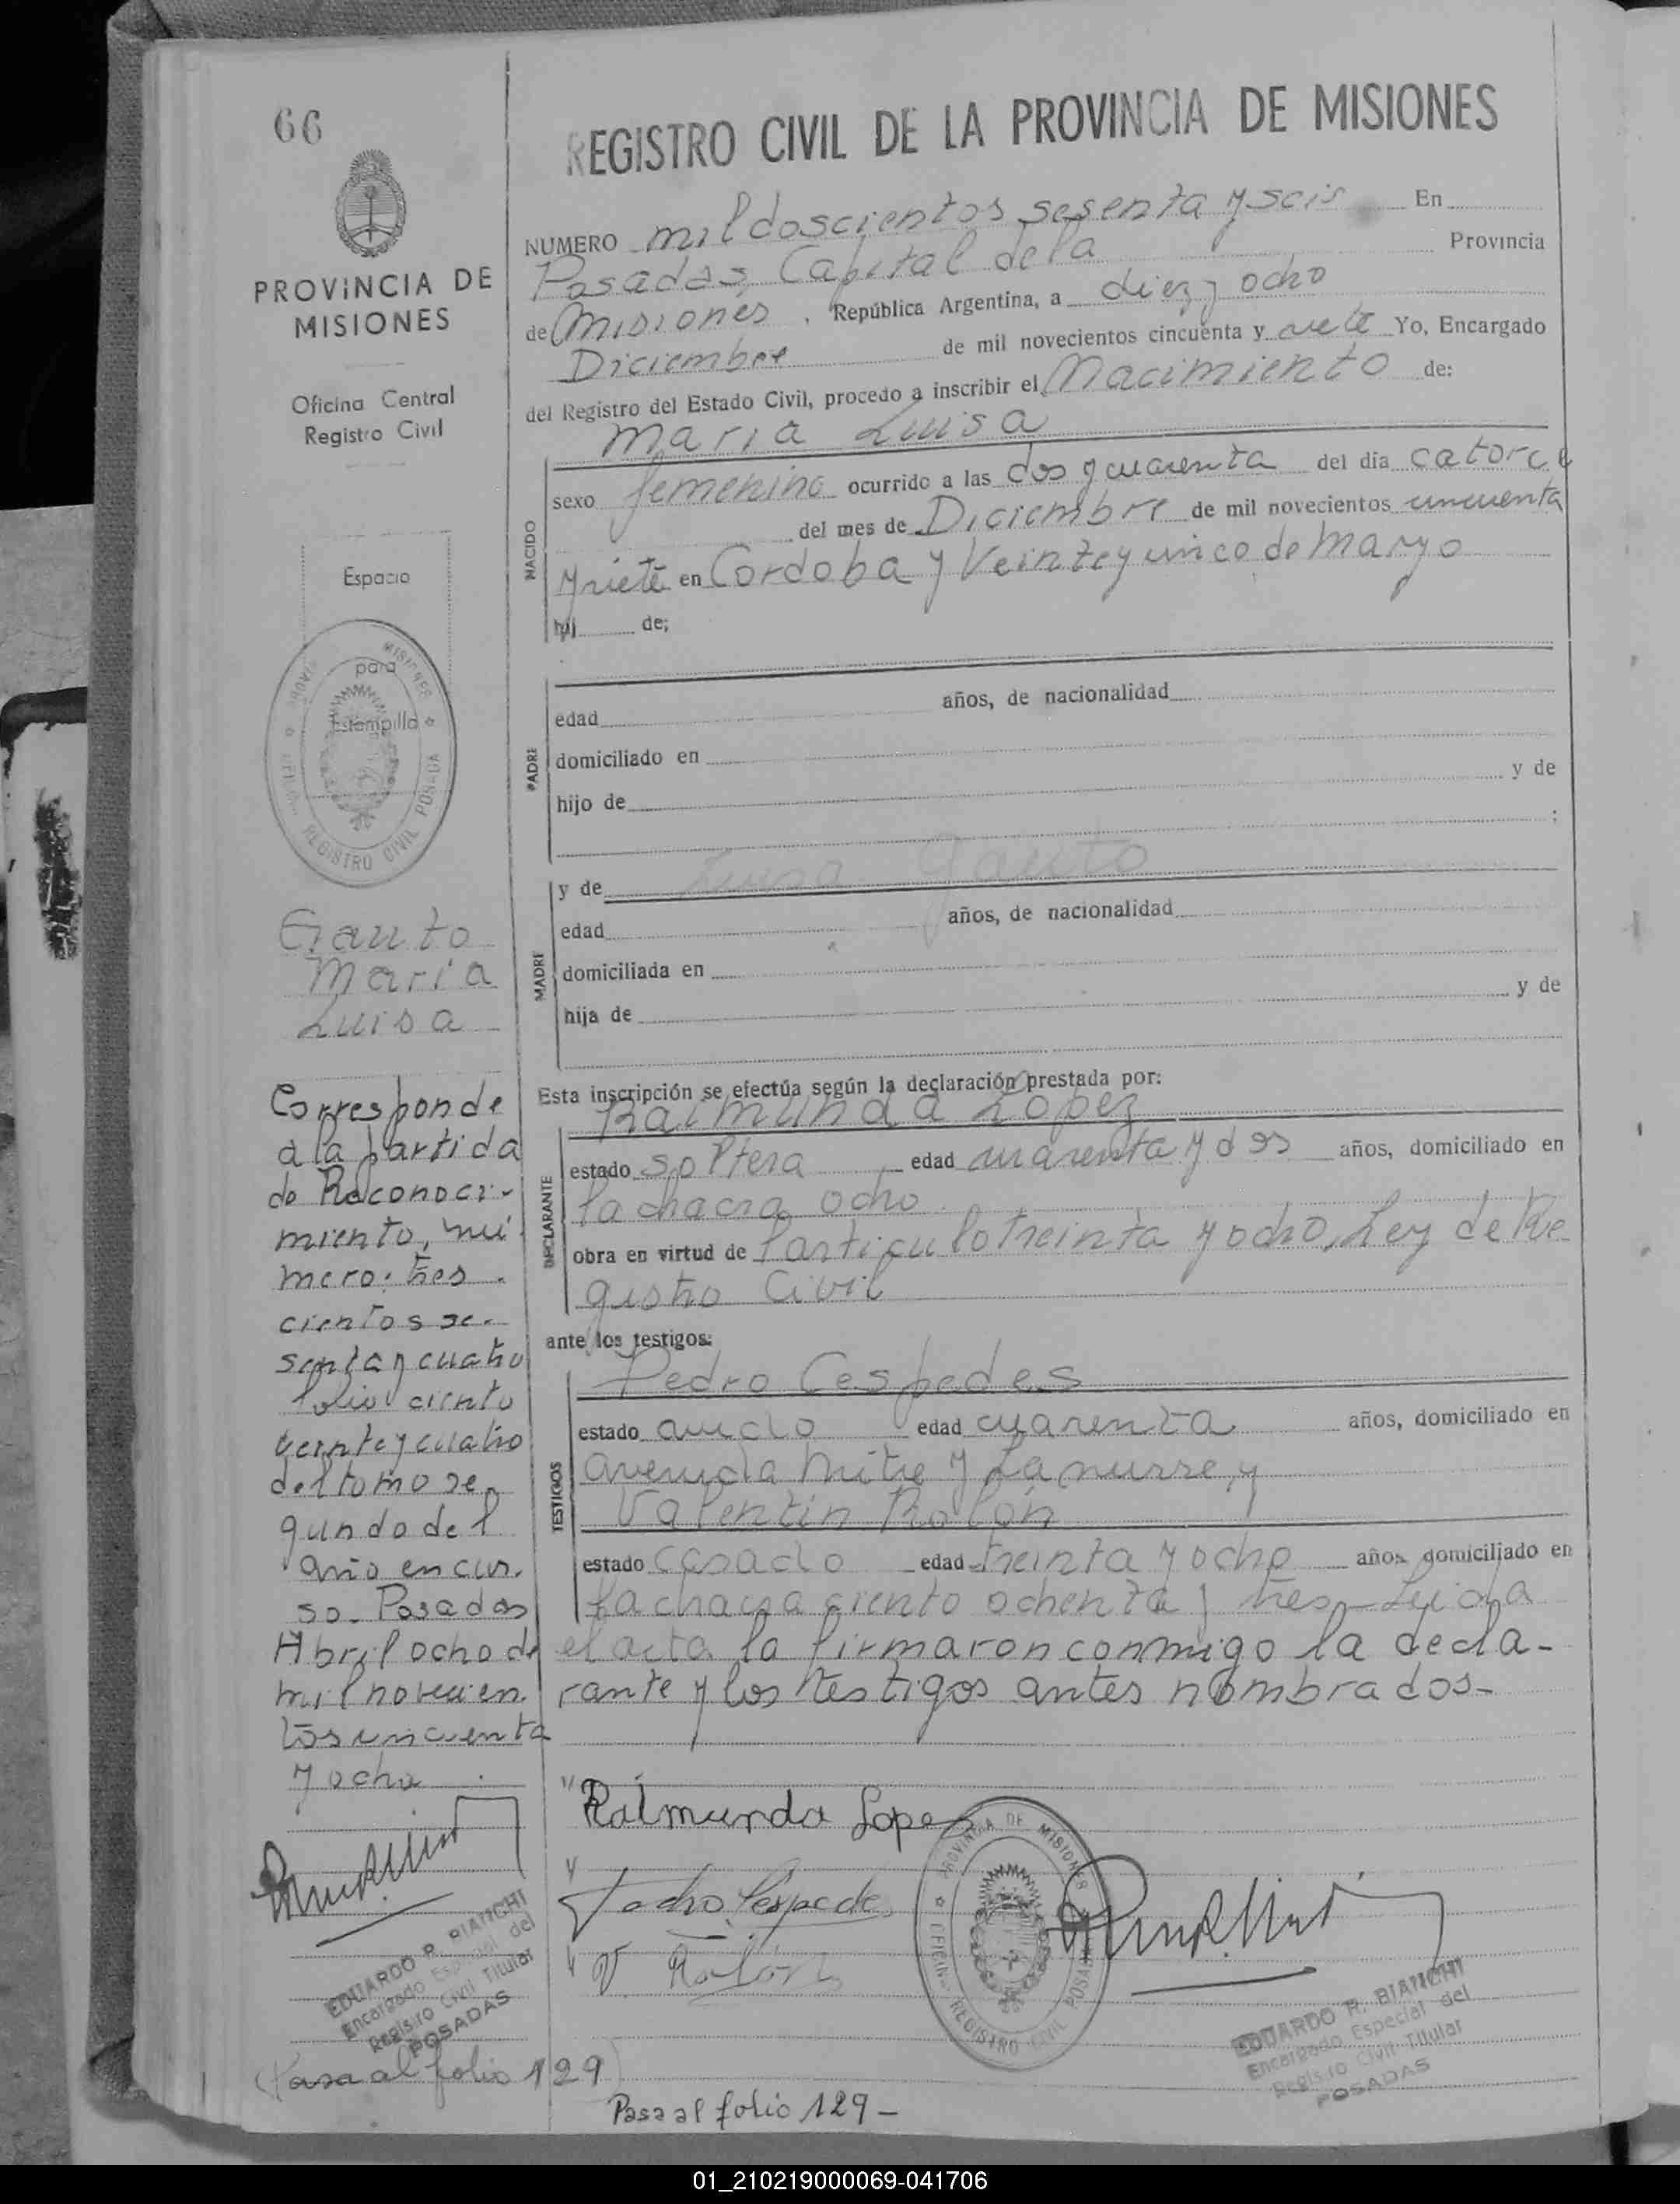 66
PROVINCIA DE
MISIONES
Oficina Central
Registro Civil
Espacio
para
Estampilla
PROVINCIA MISIONES
REGISTRO CIVIL POSADAS
Gauto
Maria
Luisa
Corresponde
a la partida
de Reconoci-
miento, nú-
mero: tres
cientos se-
senta y cuatro
folio ciento
veinte y cuatro
del tomo se
gundo del
año en cur.
so. Posadas
Abril ocho de
mil novecien
tos cincuenta
y ocho
EDUARDO R. BIANCHI
Encargado Especial del
Registro Civil Titular
POSADAS
(Pasa al folio 129)
REGISTRO CIVIL DE LA PROVINCIA DE MISIONES
NUMERO mil doscientos sesenta y seis En
Posadas, Capital de la Provincia
de Misiones, República Argentina, a diez y ocho
Diciembre de mil novecientos cincuenta y siete Yo, Encargado
del Registro del Estado Civil, procedo a inscribir el Nacimiento de:
Maria Luisa
NACIDO
sexo femenino ocurrido a las dos y cuarenta del día catorce
del mes de Diciembre de mil novecientos cincuenta
y siete en Cordoba y Veinte y cinco de Mayo
hij de;
PADRE
edad años, de nacionalidad
domiciliado en
hijo de y de
;
MADRE
y de Luisa Gauto
edad años, de nacionalidad
domiciliada en
hija de y de
Esta inscripción se efectúa según la declaración prestada por:
Raimunda Lopez
DECLARANTE
estado soltera edad cuarenta y dos años, domiciliado en
la chacra ocho
obra en virtud de l'articulo treinta y ocho, Ley de Re
gistro Civil
ante los testigos:
Pedro Cespedes
TESTIGOS
estado viudo edad cuarenta años, domiciliado en
avenida Mitre y Lanusse, y
Valentin Rolón
estado casado edad treinta y ocho años domiciliado en
la chacra ciento ochenta y tres - Leida
el acta la firmaron conmigo la decla-
rante y los testigos antes nombrados-
Raimunda Lopez
Pedro Cespedes
V. Rolón
PROVINCIA DE MISIONES
REGISTRO CIVIL POSADAS
EDUARDO R. BIANCHI
Encargado Especial del
Registro Civil Titular
POSADAS
Pasa al folio 129 -
01_210219000069-041706